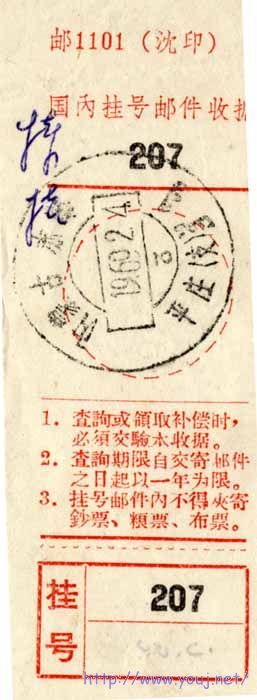 邮1101（沈印）
国内挂号邮件收据
207
1969.2.4
平庄
1. 查詢或領取补偿时，
必須交驗本收据。
2. 查詢期限自交寄邮件
之日起以一年为限。
3. 挂号邮件內不得夾寄
鈔票、粮票、布票。
挂号
207
http://www.youj.net/